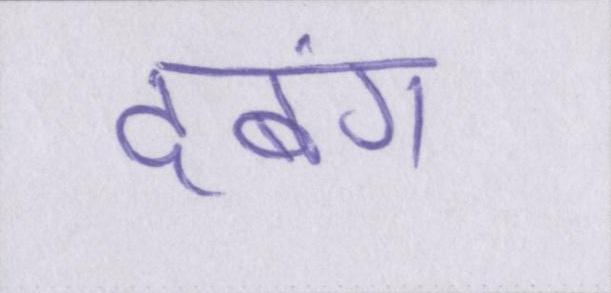 दबंग